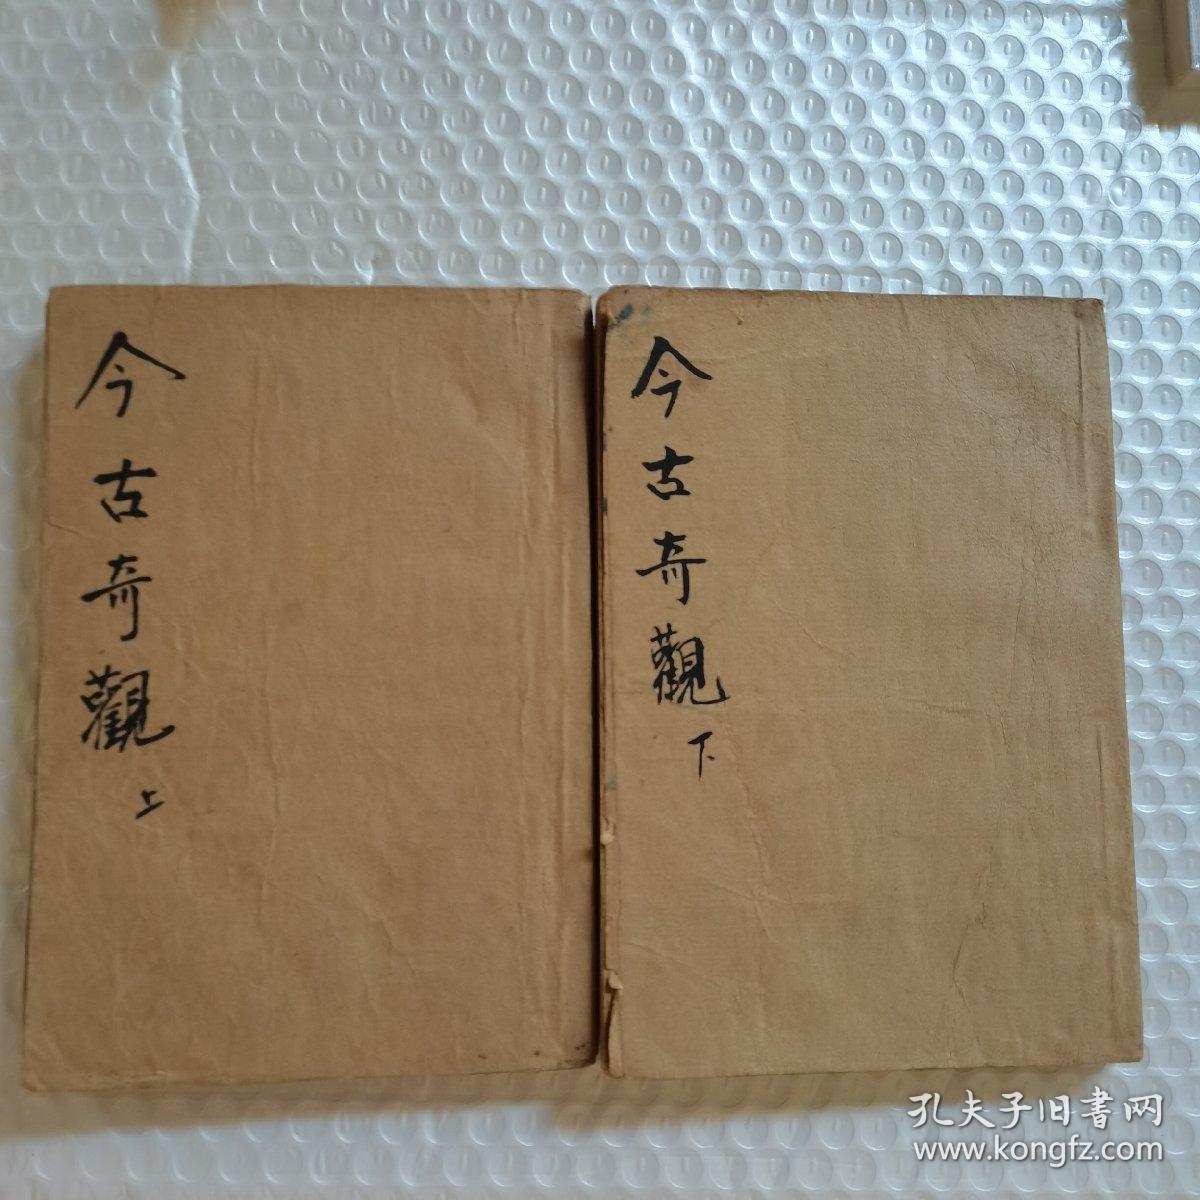 今古奇觀
上
今古奇觀
下
孔夫子旧書网
www.kongfz.com